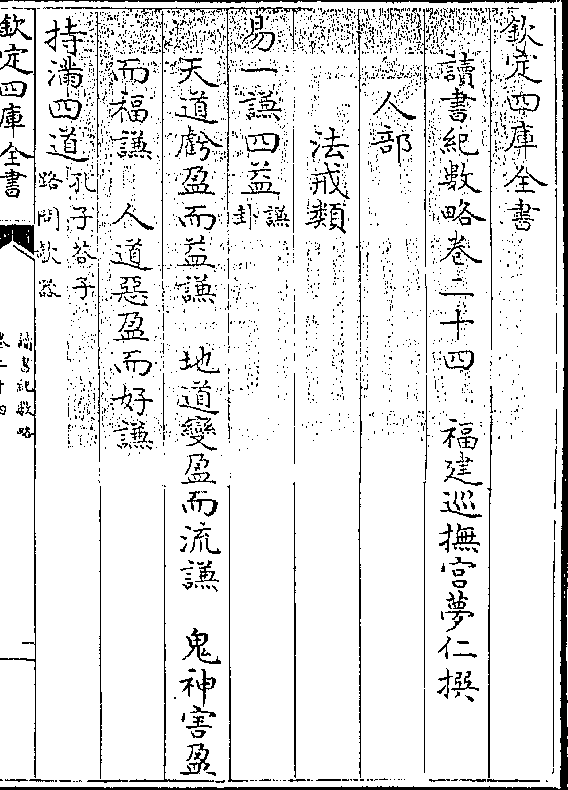 欽定四庫全書
讀書紀數略卷二十四　福建巡撫宮夢仁撰
人部
法戒類
易一謙四益謙卦
天道虧盈而益謙　地道變盈而流謙　鬼神害盈
而福謙　人道惡盈而好謙
持滿四道孔子答子路問欹器
欽定四庫全書
讀書紀數略
卷二十四
一